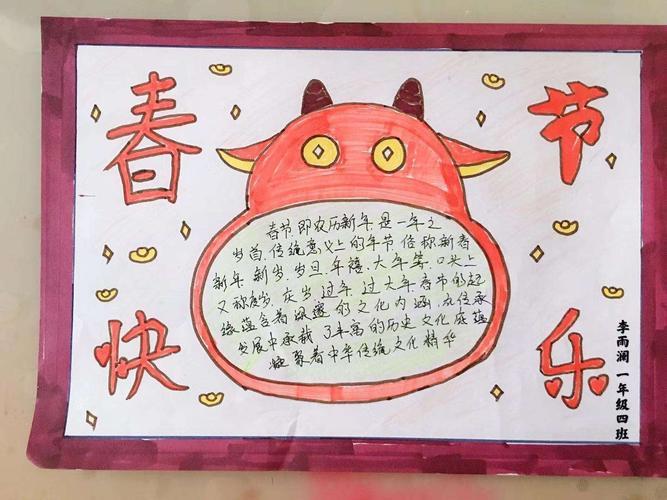 春节
快乐
春节,即农历新年,是一年之
岁首、传统意义上的年节.俗称新春
新年、新岁、岁旦、年禧、大年等,口头上
又称度岁、庆岁、过年、过大年.春节的起
缘蕴含着深邃的文化内涵,在传承
发展中承载了丰富的历史文化底蕴
聚着中华传统文化精华
李雨澜 一年级四班